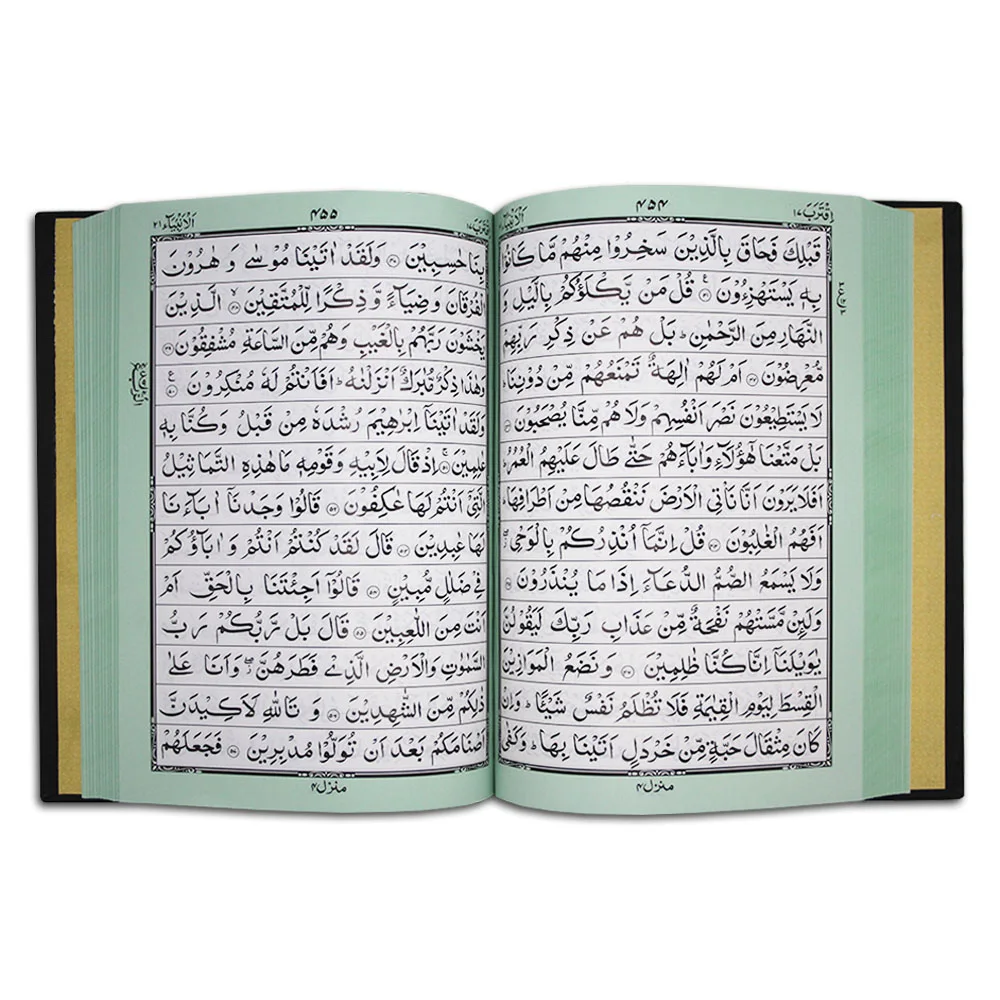 اقترب ١٧
۴۵۴
الانبیاء
قَبْلِكَ فَحَاقَ بِالَّذِيْنَ سَخِرُوْا مِنْهُمْ مَّا كَانُوْا
بِهٖ يَسْتَهْزِءُوْنَ ۝ قُلْ مَنْ يَّكْلَؤُكُمْ بِالَّيْلِ وَ
النَّهَارِ مِنَ الرَّحْمٰنِ ؕ بَلْ هُمْ عَنْ ذِكْرِ رَبِّهِمْ
مُّعْرِضُوْنَ ۝ اَمْ لَهُمْ اٰلِهَةٌ تَمْنَعُهُمْ مِّنْ دُوْنِنَا ؕ
لَا يَسْتَطِيْعُوْنَ نَصْرَ اَنْفُسِهِمْ وَلَا هُمْ مِّنَّا يُصْحَبُوْنَ ۝
بَلْ مَتَّعْنَا هٰٓؤُلَآءِ وَاٰبَآءَهُمْ حَتّٰى طَالَ عَلَيْهِمُ الْعُمُرُ ؕ
اَفَلَا يَرَوْنَ اَنَّا نَاْتِى الْاَرْضَ نَنْقُصُهَا مِنْ اَطْرَافِهَا ؕ
اَفَهُمُ الْغٰلِبُوْنَ ۝ قُلْ اِنَّمَاۤ اُنْذِرُكُمْ بِالْوَحْىِ ۖ
وَلَا يَسْمَعُ الصُّمُّ الدُّعَآءَ اِذَا مَا يُنْذَرُوْنَ ۝
وَلَئِنْ مَّسَّتْهُمْ نَفْحَةٌ مِّنْ عَذَابِ رَبِّكَ لَيَقُوْلُنَّ
يٰوَيْلَنَاۤ اِنَّا كُنَّا ظٰلِمِيْنَ ۝ وَنَضَعُ الْمَوَازِيْنَ
الْقِسْطَ لِيَوْمِ الْقِيٰمَةِ فَلَا تُظْلَمُ نَفْسٌ شَيْـًٔا ؕ وَاِنْ
كَانَ مِثْقَالَ حَبَّةٍ مِّنْ خَرْدَلٍ اَتَيْنَا بِهَا ؕ وَكَفٰى
منزل ۴
اقترب ١٧
۴۵۵
الانبیاء ٢١
بِنَا حٰسِبِيْنَ ۝ وَلَقَدْ اٰتَيْنَا مُوْسٰى وَ هٰرُوْنَ
الْفُرْقَانَ وَضِيَآءً وَّذِكْرًا لِّلْمُتَّقِيْنَ ۝ الَّذِيْنَ
يَخْشَوْنَ رَبَّهُمْ بِالْغَيْبِ وَهُمْ مِّنَ السَّاعَةِ مُشْفِقُوْنَ ۝
وَهٰذَا ذِكْرٌ مُّبٰرَكٌ اَنْزَلْنٰهُ ؕ اَفَاَنْتُمْ لَهٗ مُنْكِرُوْنَ ۝
وَلَقَدْ اٰتَيْنَاۤ اِبْرٰهِيْمَ رُشْدَهٗ مِنْ قَبْلُ وَكُنَّا بِهٖ
عٰلِمِيْنَ ۝ اِذْ قَالَ لِاَبِيْهِ وَقَوْمِهٖ مَا هٰذِهِ التَّمَاثِيْلُ
الَّتِىْۤ اَنْتُمْ لَهَا عٰكِفُوْنَ ۝ قَالُوْا وَجَدْنَاۤ اٰبَآءَنَا
لَهَا عٰبِدِيْنَ ۝ قَالَ لَقَدْ كُنْتُمْ اَنْتُمْ وَاٰبَآؤُكُمْ
فِىْ ضَلٰلٍ مُّبِيْنٍ ۝ قَالُوْۤا اَجِئْتَنَا بِالْحَقِّ اَمْ
اَنْتَ مِنَ اللّٰعِبِيْنَ ۝ قَالَ بَلْ رَّبُّكُمْ رَبُّ
السَّمٰوٰتِ وَالْاَرْضِ الَّذِىْ فَطَرَهُنَّ ۖ وَاَنَا عَلٰى
ذٰلِكُمْ مِّنَ الشّٰهِدِيْنَ ۝ وَ تَاللّٰهِ لَاَكِيْدَنَّ
اَصْنَامَكُمْ بَعْدَ اَنْ تُوَلُّوْا مُدْبِرِيْنَ ۝ فَجَعَلَهُمْ
منزل ۴